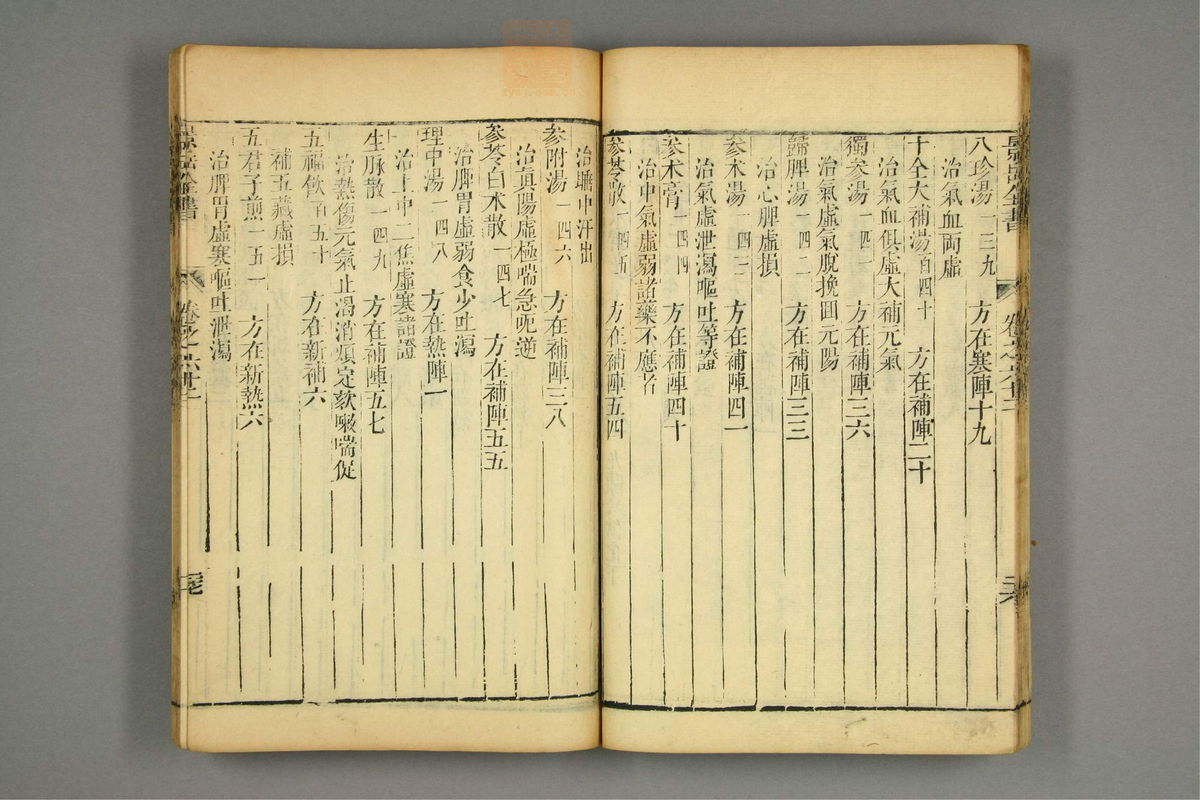 景岳全書
八珍湯一三九 方在寒陣十九
治氣血両虛
十全大補湯百四十 方在補陣二十
治氣血俱虛大補元氣
獨參湯一四一 方在補陣三六
治氣虛氣脫挽回元陽
歸脾湯一四二 方在補陣三三
治心脾虛損
參术湯一四三 方在補陣四一
治氣虛泄瀉嘔吐等證
參术膏一四四 方在補陣四十
治中氣虛弱諸藥不應者
參苓散一四五 方在補陣五四
治睡中汗出
參附湯一四六 方在補陣三八
治眞陽虛極喘急呃逆
參苓白术散一四七 方在補陣五五
治脾胃虛弱食少吐瀉
理中湯一四八 方在熱陣一
治上中二焦虛寒諸證
生脉散一四九 方在補陣五七
治熱傷元氣止渴消煩定欬嗽喘促
五福飲百五十 方在新補六
補五臟虛損
五君子煎一五一 方在新熱六
治脾胃虛寒嘔吐泄瀉
景岳全書